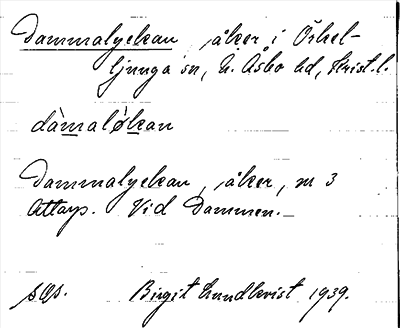 Dammalyckan, åker i Örkel-
ljunga sn, N. Åsbo hd, Krist.l.
dàmaløkan
Dammalyckan, åker, nr 3
Attarp. Vid Dammen.
Birgit Lundkvist 1939.